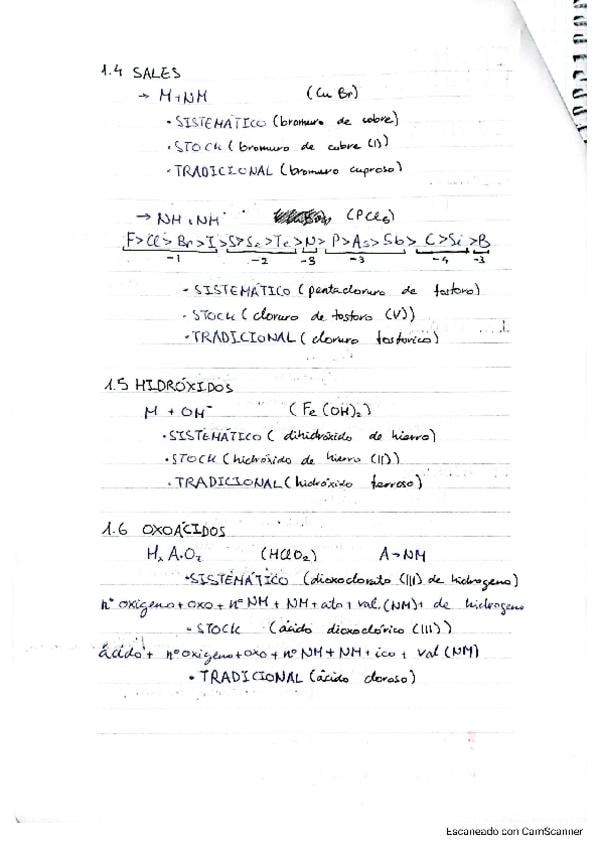 1.4 SALES
→ M+NM (Cu Br)
• SISTEMÁTICO (bromuro de cobre)
• STOCK (bromuro de cobre (I))
• TRADICIONAL (bromuro cuproso)
→ NH + NH (PCl5)
F>Cl>Br>I>S>Se>Te>N>P>As>Sb>C>Si>B
-1 -2 -3 -3 -4 -3
- SISTEMÁTICO (pentacloruro de fosforo)
- STOCK (cloruro de fosforo (V))
- TRADICIONAL (cloruro fosforico)
1.5 HIDRÓXIDOS
M + OH⁻ (Fe(OH)₂)
• SISTEMÁTICO (dihidróxido de hierro)
• STOCK (hidróxido de hierro (II))
• TRADICIONAL (hidróxido ferroso)
1.6 OXOÁCIDOS
Hx A Oz (HClO₂) A→NM
• SISTEMÁTICO (dioxoclorato (III) de hidrogeno)
nº oxigeno + oxo + nº NM + NM + ato + val. (NM) + de hidrogeno
• STOCK (ácido dioxoclórico (III))
ácido + nº oxigeno + oxo + nº NM + NM + ico + val (NM)
• TRADICIONAL (ácido cloroso)
Escaneado con CamScanner